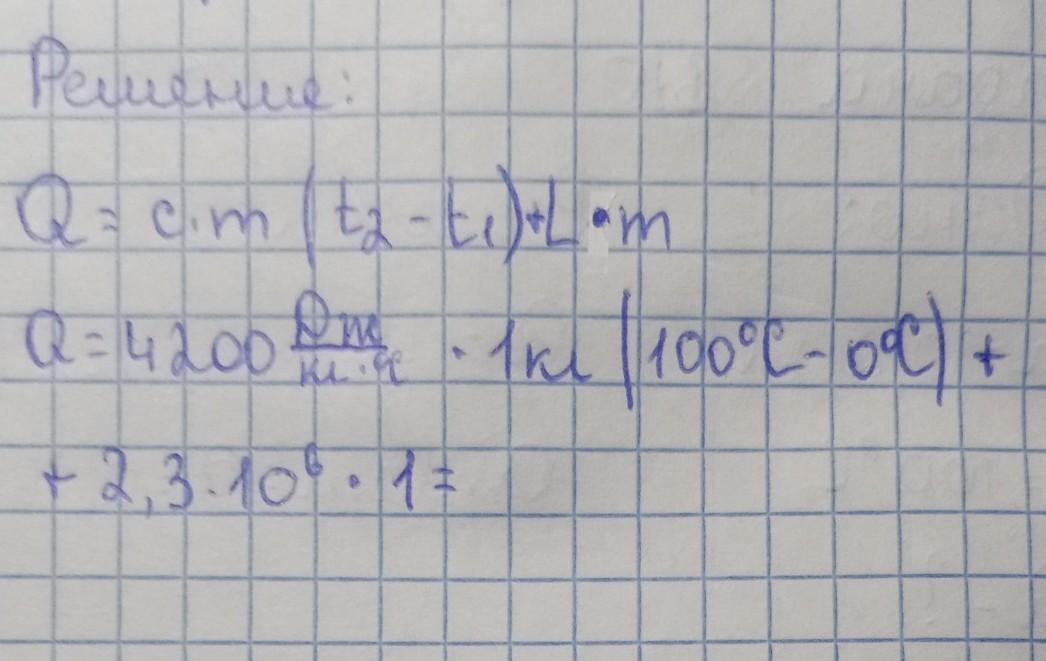 Решение:
Q = c·m (t₂ - t₁) + L · m
Q = 4200 Дж/кг·°C · 1 кг (100°C - 0°C) +
+ 2,3·10⁶ · 1 =